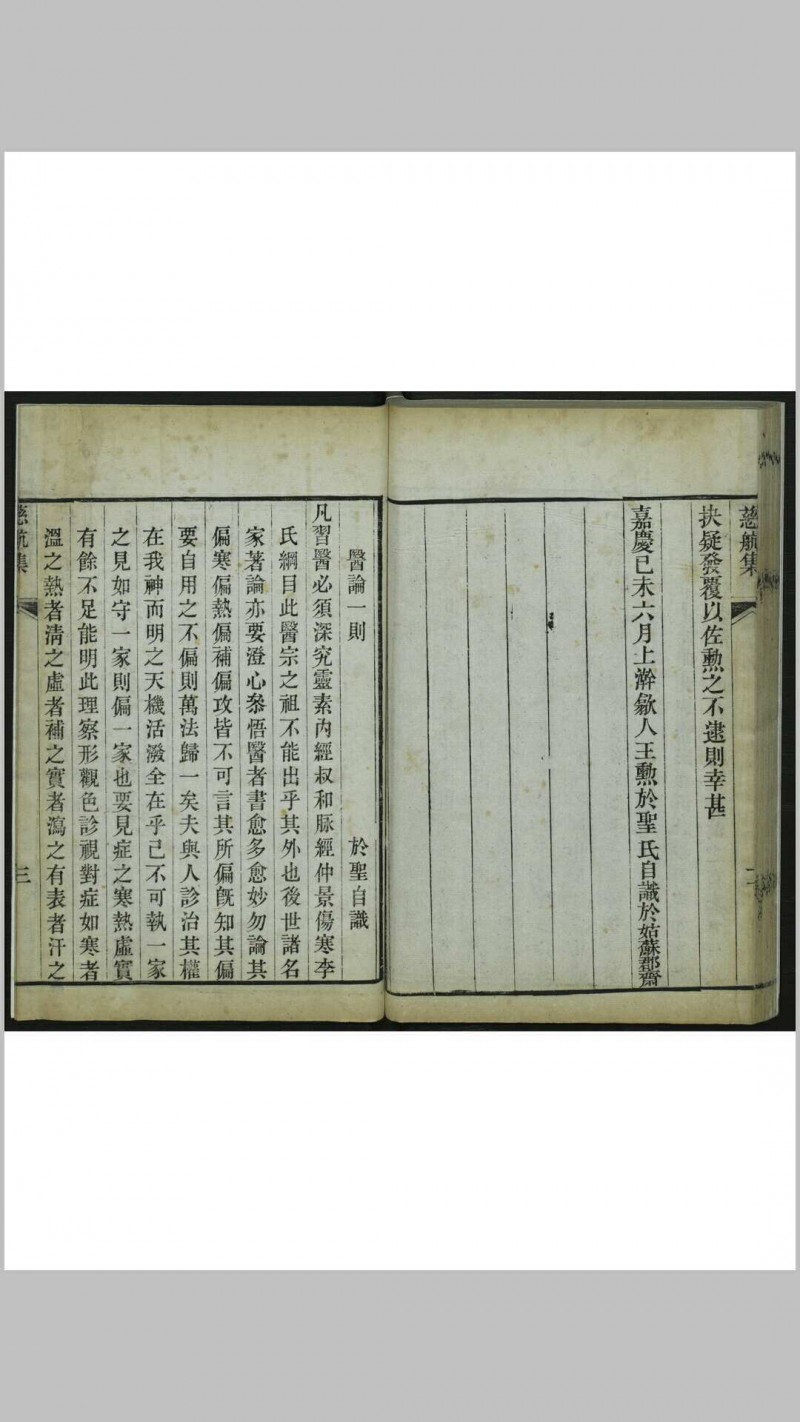 慈航集
抉疑發覆以佐勲之不逮則幸甚
嘉慶己未六月上澣歙人王勲於聖氏自識於姑蘇郡齋
二
醫論一則
於聖自識
凡習醫必須深究靈素內經叔和脈經仲景傷寒李
氏綱目此醫宗之祖不能出乎其外也後世諸名
家著論亦要澄心叅悟醫者書愈多愈妙勿論其
偏寒偏熱偏補偏攻皆不可言其所偏旣知其偏
要自用之不偏則萬法歸一矣夫與人診治其權
在我神而明之天機活潑全在乎己不可執一家
之見如守一家則偏一家也要見症之寒熱虛實
有餘不足能明此理察形觀色診視對症如寒者
溫之熱者淸之虛者補之實者瀉之有表者汗之
慈航集
三